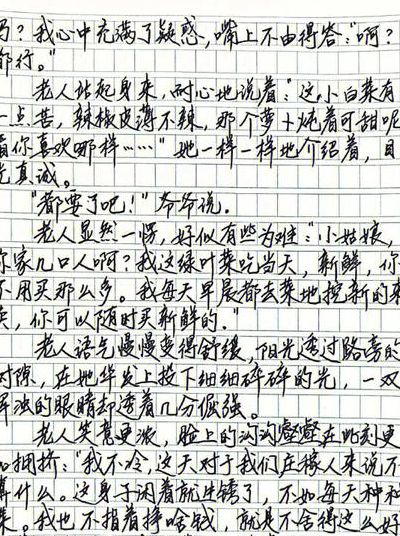 吗？我心中充满了疑惑，嘴上不由得答："啊？
都行。"
老人站起身来，耐心地说着："这小白菜有
一点苦，辣椒皮薄不辣，那个萝卜炖着可甜呢
看你喜欢哪样……"她一样一样地介绍着，目
光真诚。
"都要了吧！"爷爷说.
老人显然一愣，好似有些为难："小姑娘，
你家几口人啊？我这绿叶菜吃当天，新鲜，你
不用买那么多。我每天早晨都去菜地挖新的来
卖，你可以随时买新鲜的."
老人语气慢慢变得舒缓，阳光透过路旁的
树隙，在她华发上投下细细碎碎的光，一双
浑浊的眼睛却透着几分倔强。
老人笑意更浓，脸上的沟沟壑壑在此刻更
加拥挤："我不冷，这天对于我们庄稼人来说不
算什么。这身子闲着就生锈了，不如每天种种
菜。我也不指着挣啥钱，就是不舍得这么好